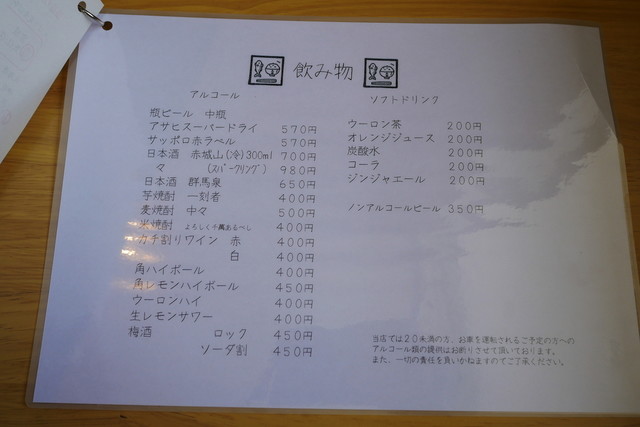 飲み物
アルコール
瓶ビール 中瓶
アサヒスーパードライ 570円
サッポロ赤ラベル 570円
日本酒 赤城山(冷)300ml 700円
々 (スパークリング) 980円
日本酒 群馬泉 650円
芋焼酎 一刻者 400円
麦焼酎 中々 500円
米焼酎 よろしく千萬あるべし 400円
カチ割りワイン 赤 400円
白 400円
角ハイボール 400円
角レモンハイボール 450円
ウーロンハイ 400円
生レモンサワー 400円
梅酒 ロック 450円
ソーダ割 450円
ソフトドリンク
ウーロン茶 200円
オレンジジュース 200円
炭酸水 200円
コーラ 200円
ジンジャエール 200円
ノンアルコールビール 350円
当店では20未満の方、お車を運転されるご予定の方への
アルコール類の提供はお断りさせて頂いております。
また、一切の責任を負いかねますのでご了承ください。